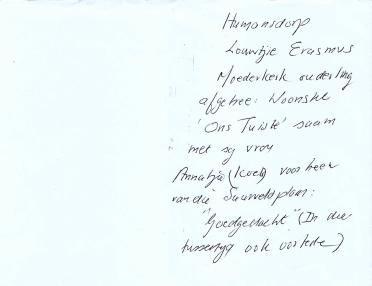 Humansdorp
Louwtjie Erasmus
Moederkerk ouderling
afgetree: Woonstel
'Ons Tuiste' saam
met sy vrou
Annatjie (Koen) voorheen
van die Suurveldplaas:
"Goedgedacht" (In die
tussentyd ook oorlede)